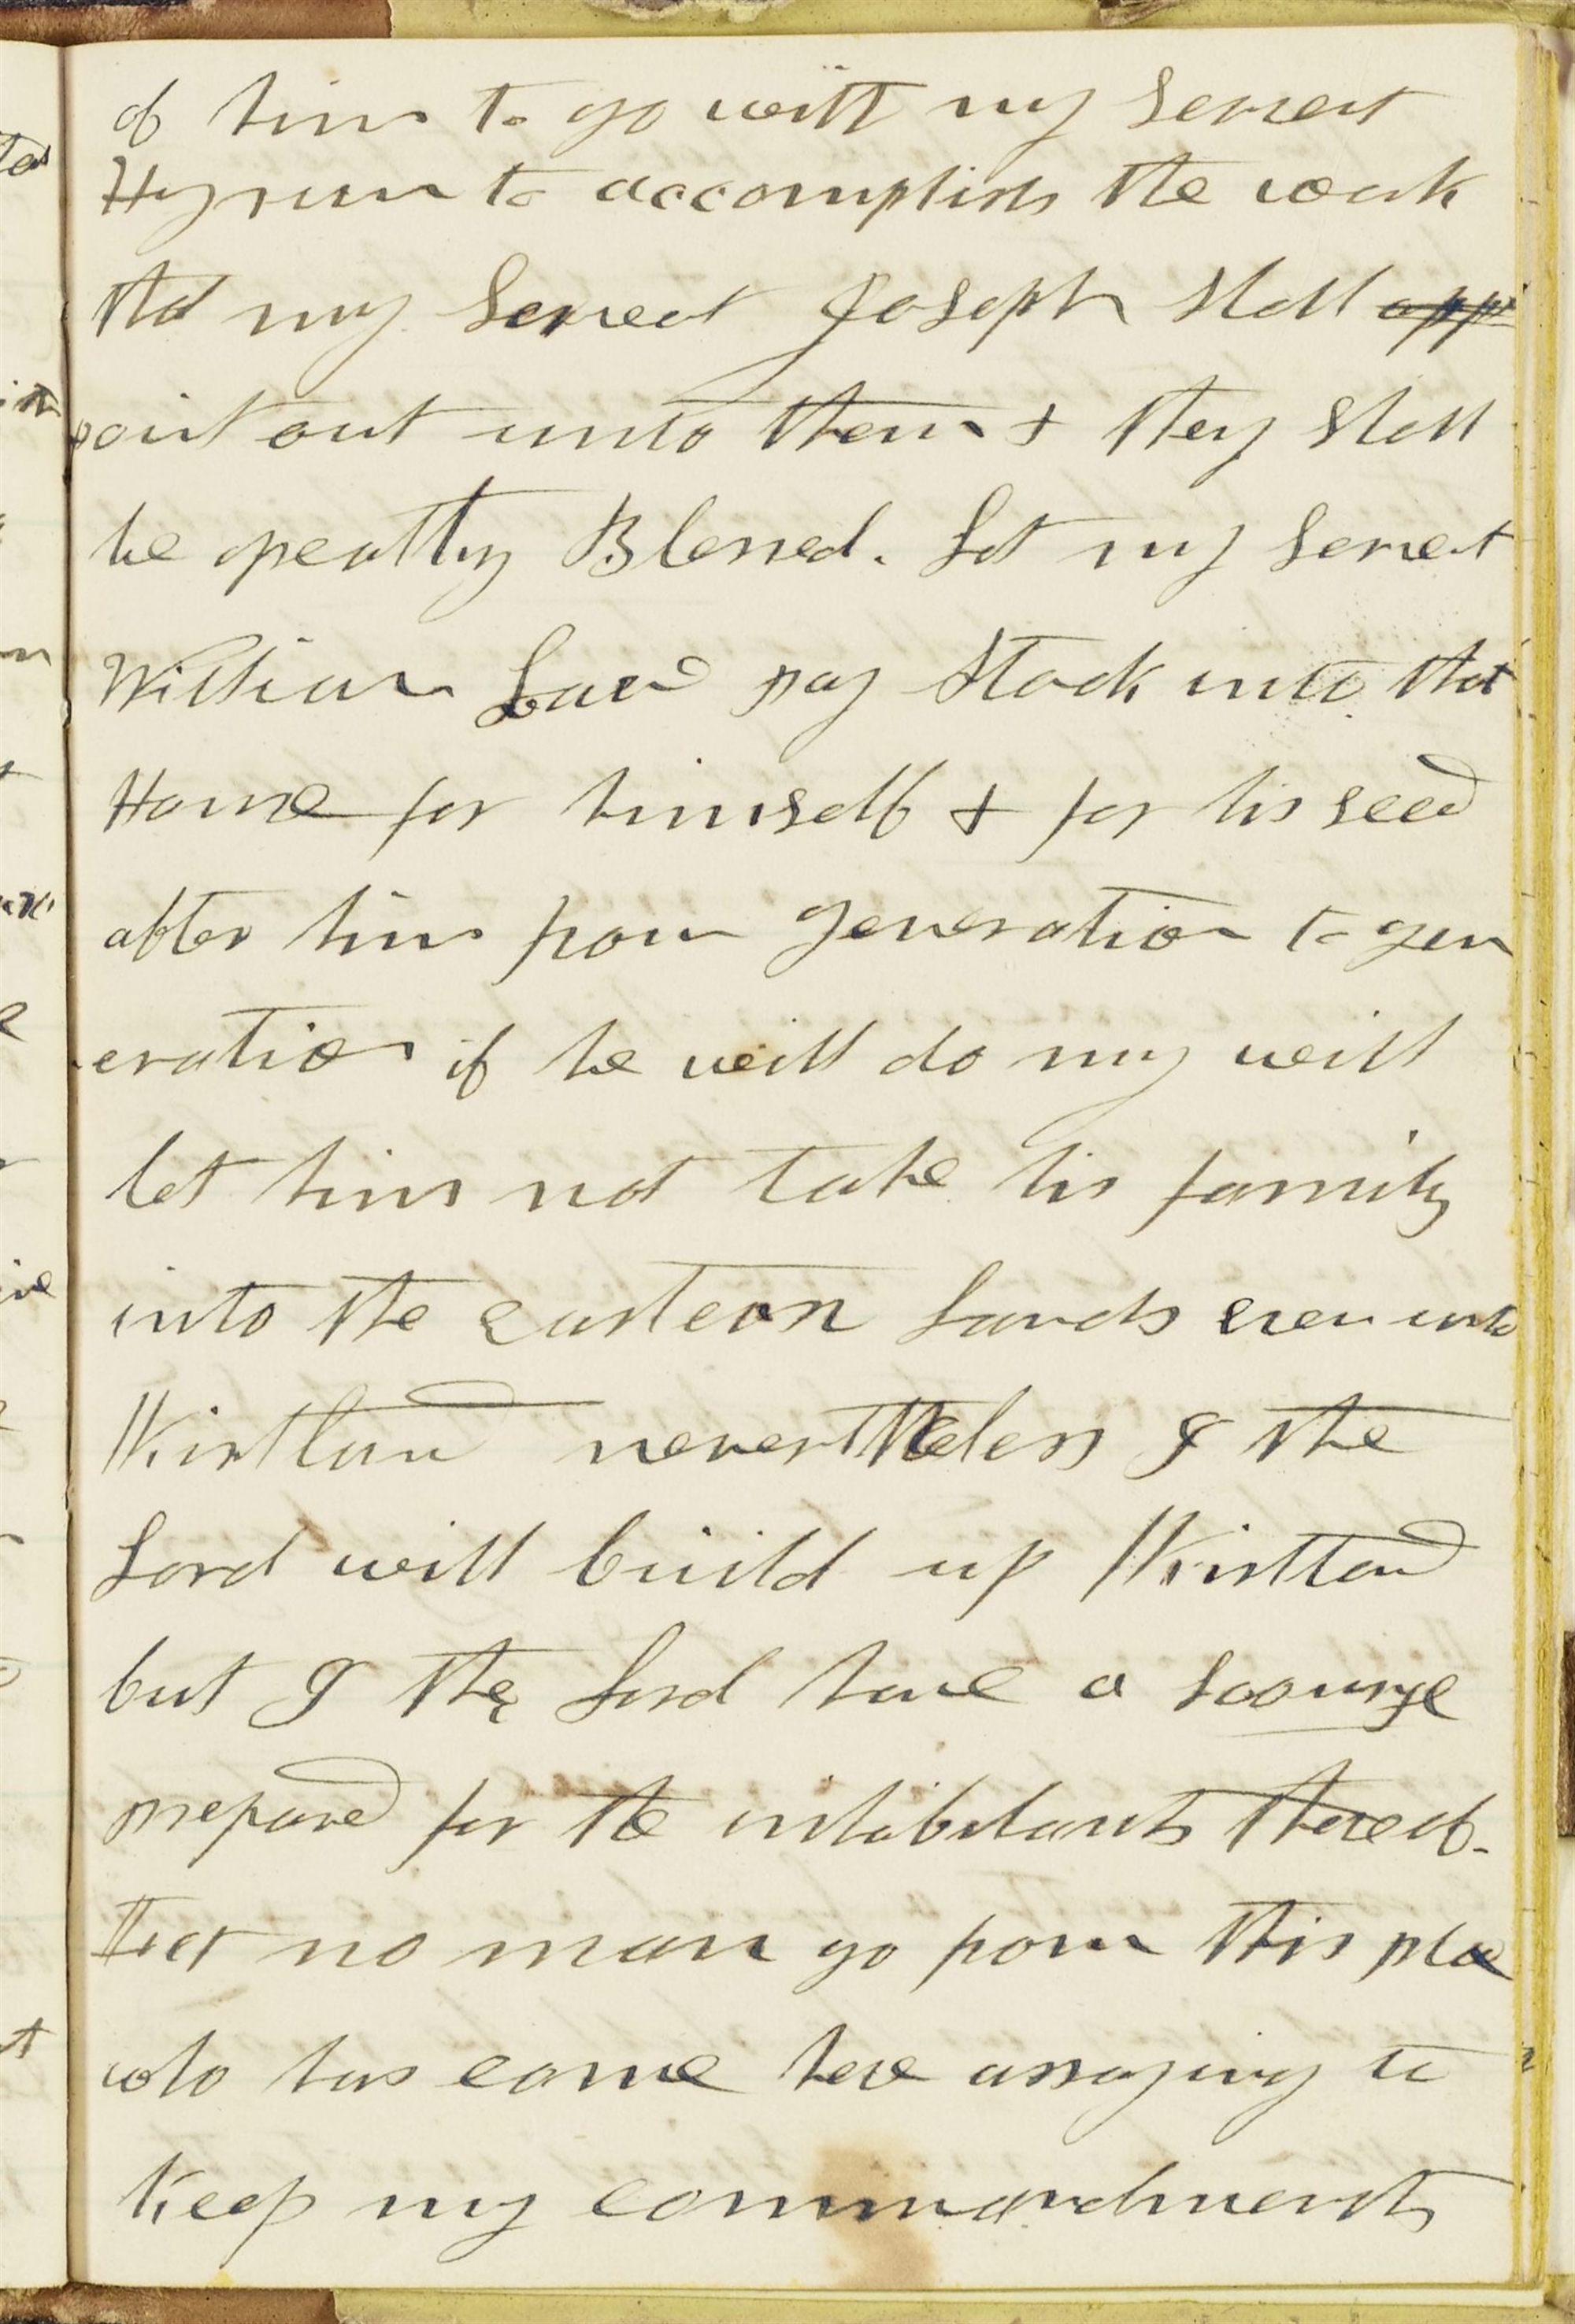 of him to go with my servent
Hyrum to accomplish the work
that my servent Joseph shall app
point out unto them & they shall
be greatly Blessed. Let my servent
William Law pay stock into that
House for himself & for his seed
after him from generation to gen
eration if he will do my will
let him not take his family
into the eastern lands even unto
Kirtland nevertheless I the
Lord will build up Kirtland
but I the Lord have a scourge
prepared for the inhabitants thereof.
Let no man go from this place
who has come here assaying to
Keep my commandments